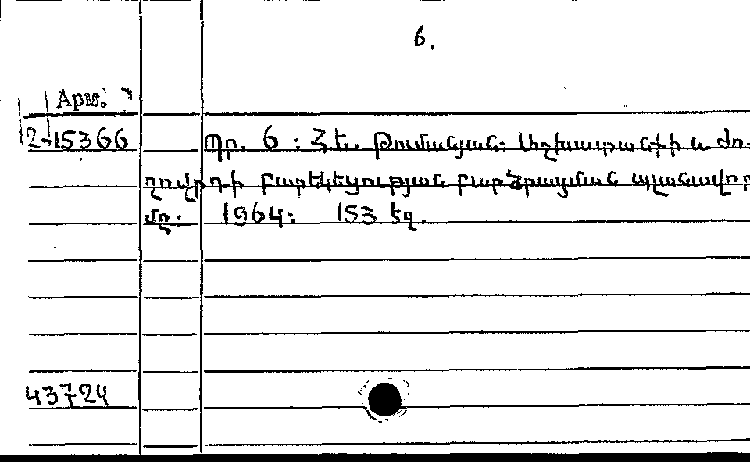 6.
Арм.
2-15366 Պր. 6 : Հ.Ե. Թումանյան. Աշխատանքի և ժո-
ղովրդի բարեկեցության բարձրացման պլանավոր
մը. 1964: 153 էջ.
43724